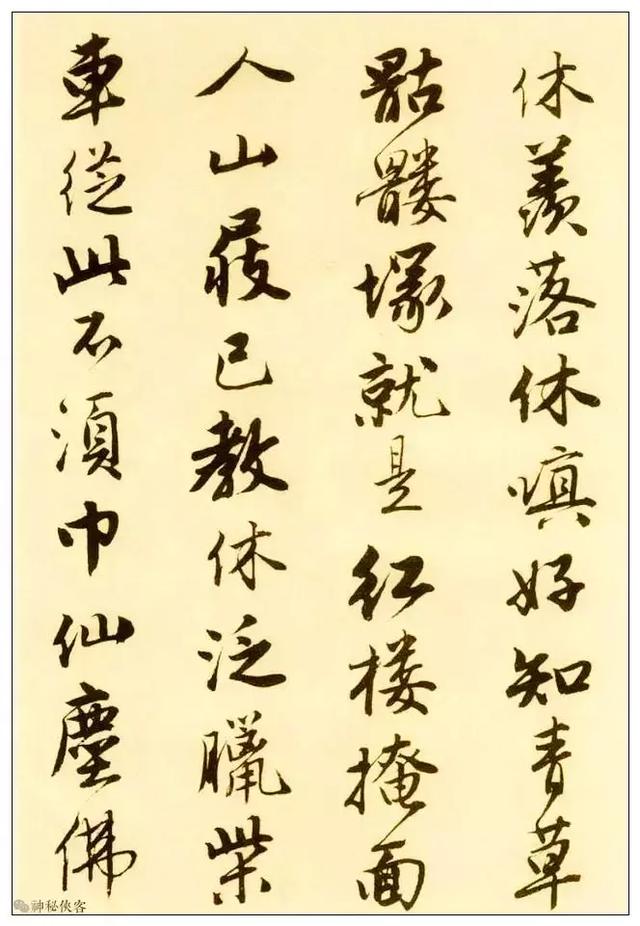 休羨落休嗔好知青草
骷髏塚就是紅樓掩面
人山屐已教休泛臘柴
車從此不須巾仙塵佛
神秘俠客